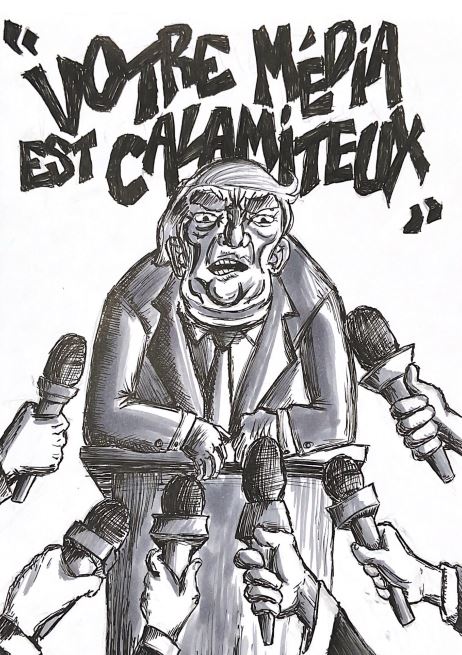 “VOTRE MÉDiA
EST CALAMiTEUX”